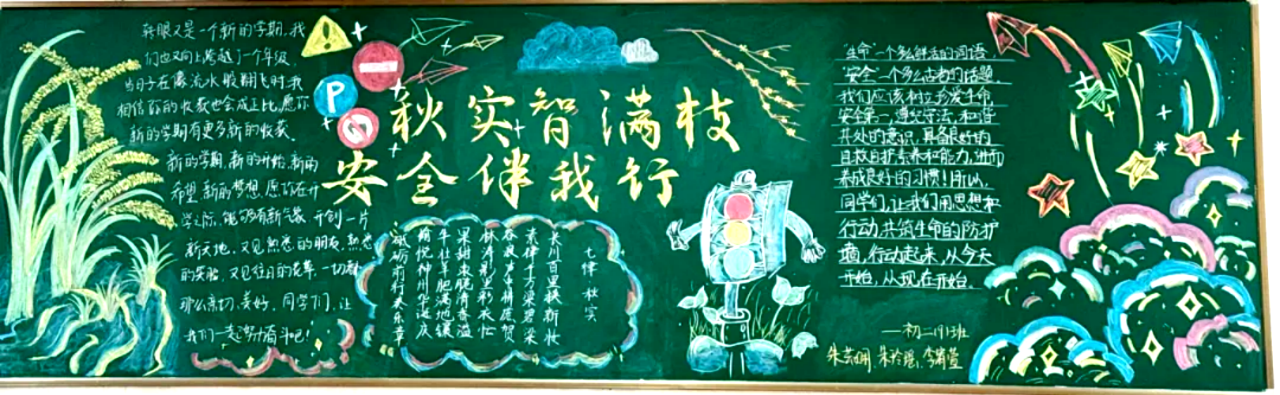 秋实智满枝
安全伴我行
转眼又是一个新的学期,我
们也又向上跨越了一个年级
当日子在像流水般翻飞时,我
相信你的收获也会成正比,愿你
新的学期有更多新的收获。
新的学期,新的开始,新的
希望,新的梦想,愿你在开
学之际,能够有新气象,开创一片
新天地,又见熟悉的朋友,熟悉
的笑脸,又见往日的老师,一切都
那么亲切、美好,同学们,让
我们一起努力奋斗吧!
P
七律 秋实
大川百里换新妆
果甜枣脆清香溢
牛壮羊肥满地镶
愉悦神州华诞庆
砥砺前行奏乐章
生命一个多么鲜活的词语
安全一个多么古老的话题
我们应该树立珍爱生命,
安全第一,遵纪守法,和谐
共处的意识,具备良好的
自救自护素养和能力,进而
养成良好的习惯!所以,
同学们,让我们用思想和
行动共筑生命的防护
墙,行动起来,从今天
开始,从现在开始。